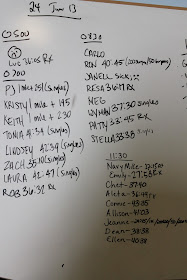 24 Jun 13
0500
WC 36:05 RX
0700
PJ 1 mile 251 (singles)
KRISTY 1 mile + 195
KEITH 1 mile + 230
TONIA 4:34 (singles)
LINDSEY 42:34 (singles)
ZACH 35:10 (singles)
LAURA 42:47 (singles)
ROB 36:31 RX
0830
CARLO
RON 40:45
JANELL SICK
RESA 36:17 RX
MEG
WYMAN 37:30 SINGLES
PATTY 33:45 RX
STELLA 38:38
11:30
Navy Mike -
Emily - 27:53 RX
Chet - 37:40
Aleta - 36:49 RX
Connie - 43:05
Allison - 41:03
Jeannie -
Dean - 38:38
Eileen - 40:38